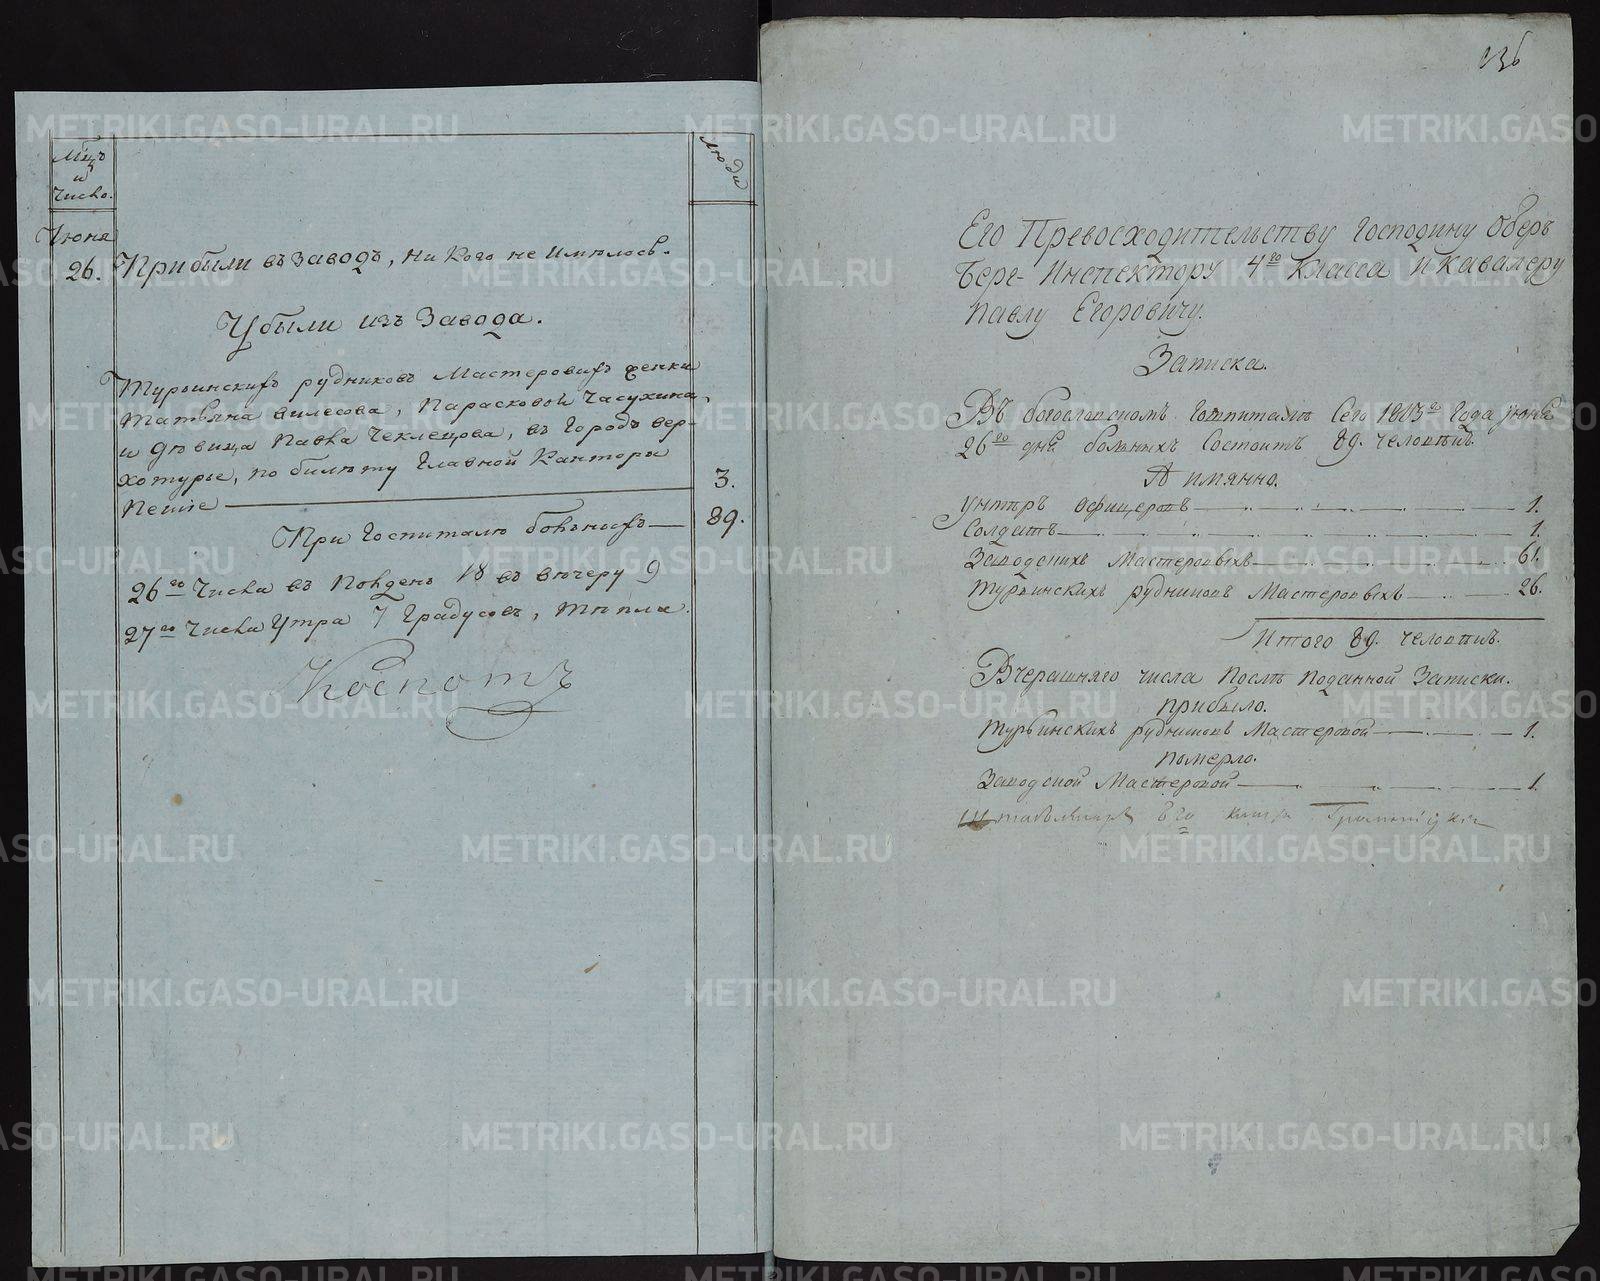 Мцъ
и
Число.
Люди
Июня
26. Прибыли въ заводъ, ни кого не имѣлось.
Убыли изъ завода.
Турьинскихъ рудниковъ мастеровихъ женки
Татьяна Вилесова, Парасковой Часухина,
и дѣвица Павла Чеклецова, въ городъ вер-
хотурье, по билѣту Главной Канторы
пешіе 3.
При госпиталѣ больнихъ 89.
26го Числа въ полдень 18 въ вѣчеру 9
27го Числа утра 7 градусовъ, тѣпла.
136
Его Превосходительству Господину Оберъ
Берг-Инспектору 4го Класса и Кавалеру
Павлу Егоровичу.
Записка.
Въ богословскомъ гошпиталѣ сего 1803го года июня
26го дня больныхъ состоитъ 89. человѣкъ.
А имянно.
Унтръ офицеровъ 1.
Солдатъ 1.
Заводскихъ мастеровыхъ 61.
Турьинскихъ рудниковъ мастеровыхъ 26.
Итого 89. человѣкъ.
Вчерашняго числа послѣ поданной записки.
прибыло.
Турьинскихъ рудниковъ мастеровой 1.
померло.
Заводской мастеровой 1.
Штаблѣкарь 8го класса
METRIKI.GASO-URAL.RU